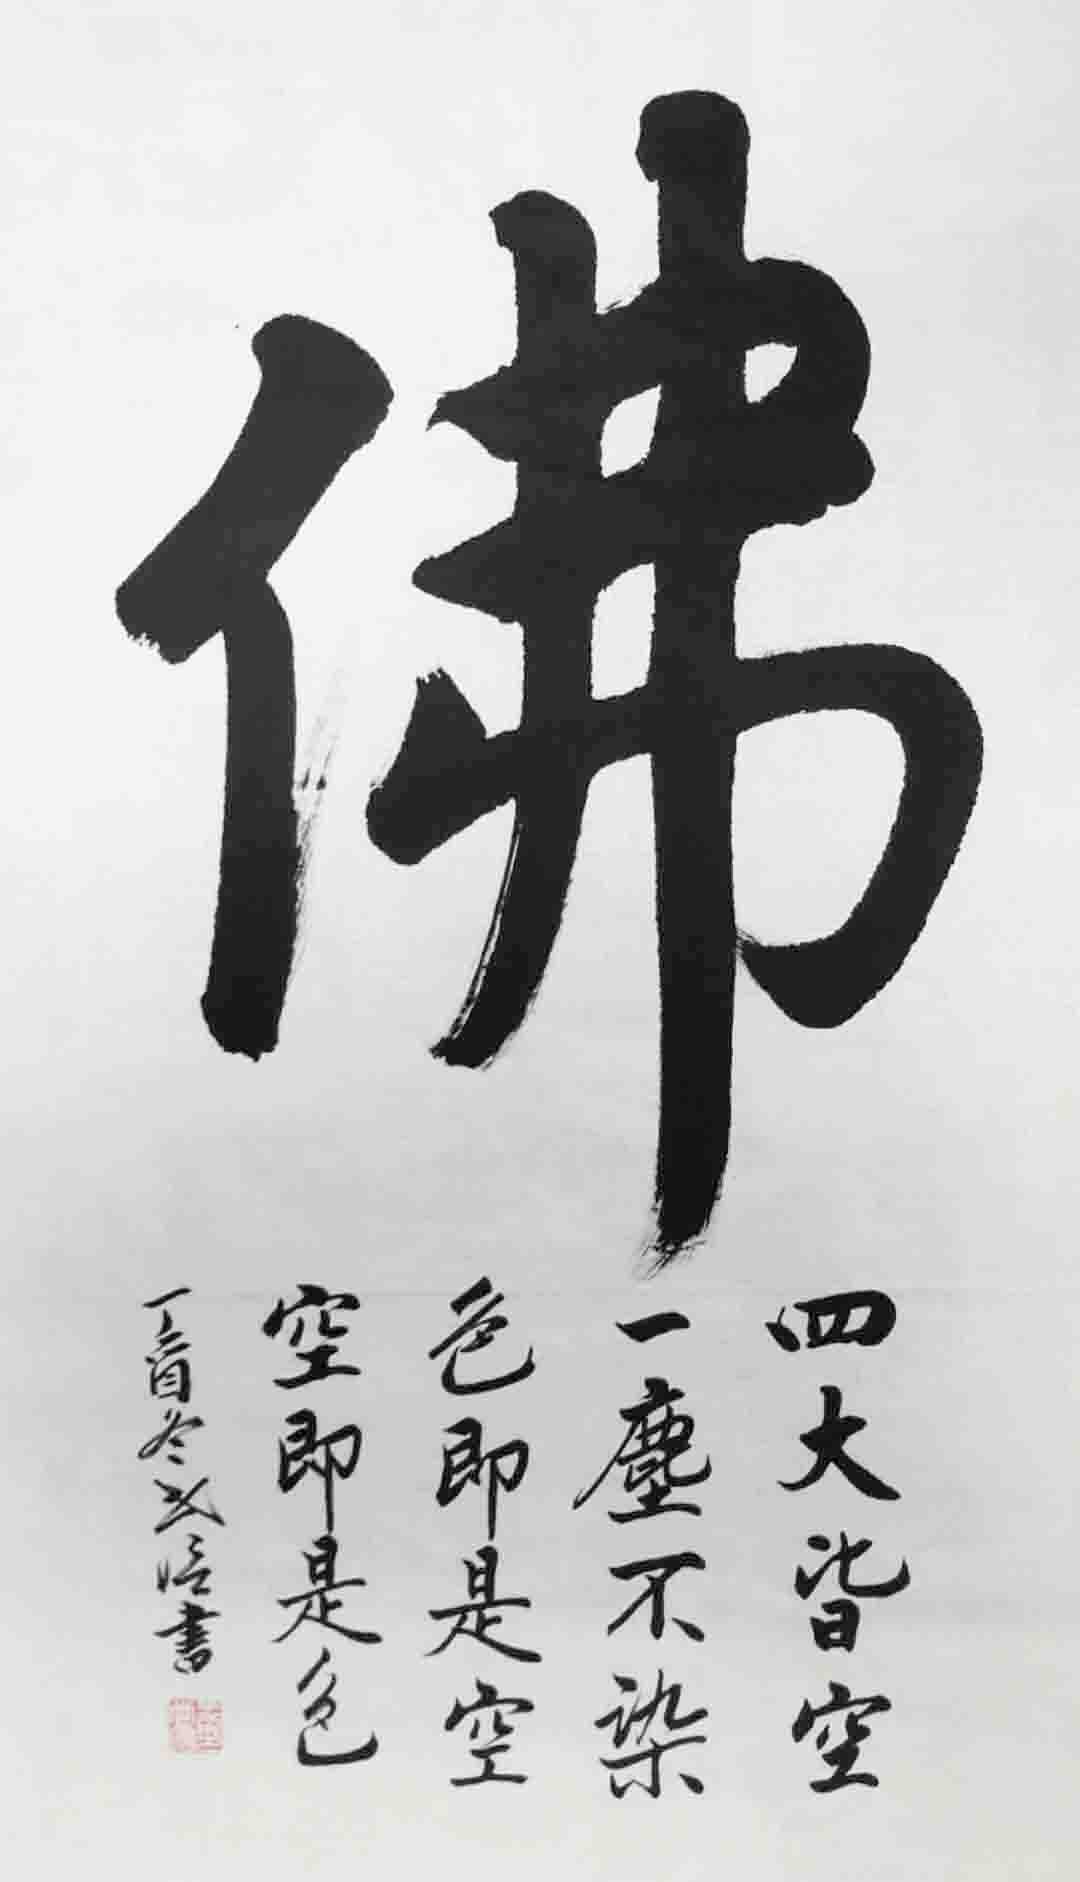 佛
四大皆空
一塵不染
色即是空
空即是色
丁酉冬武培書